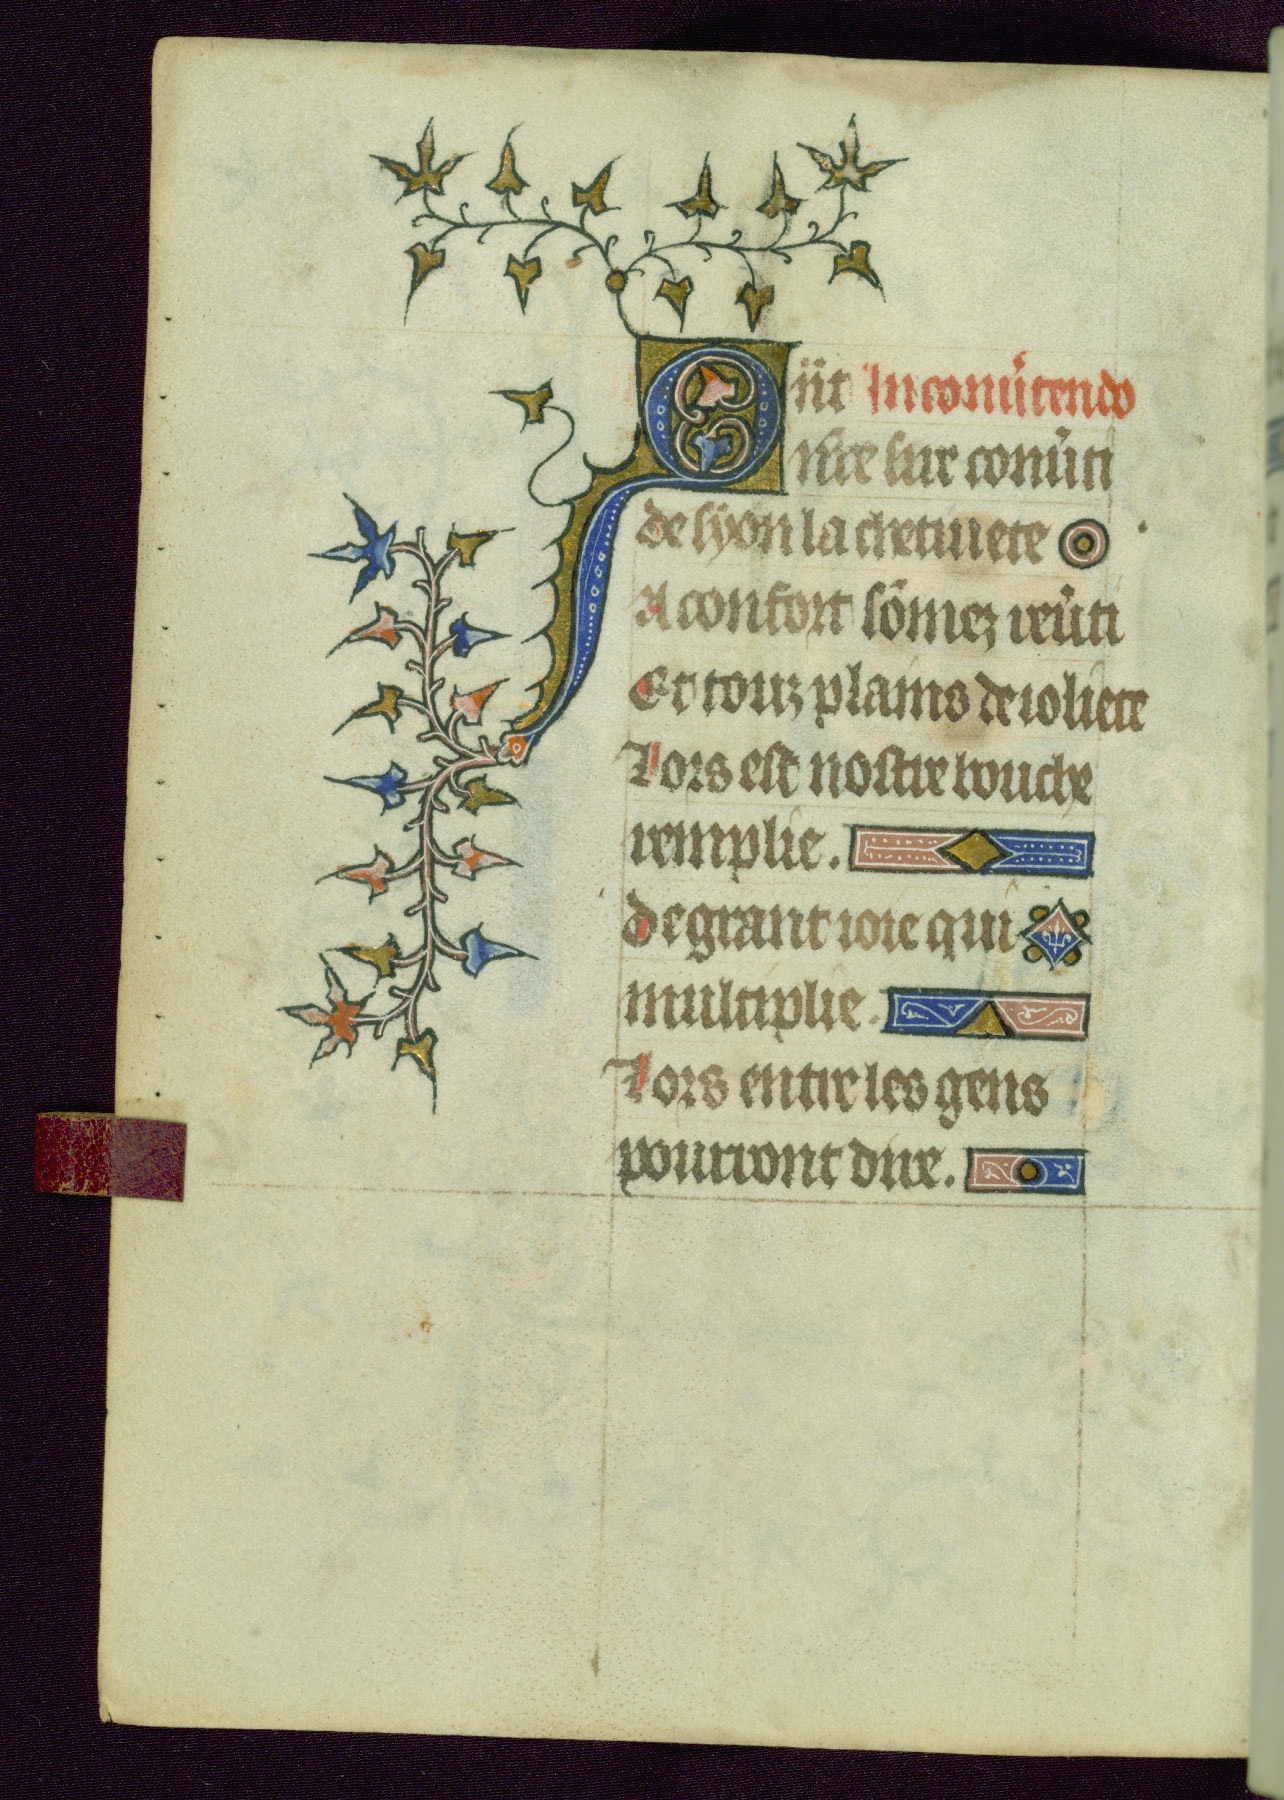 Qñt In conũtendo
nr̃e sire conũti
de syon la chetiuete
A confort sõmez reũti
Et touz plains de ioliete
Lors est nostre bouche
remplie.
de grant ioie qui
multiplie.
Lors entre les gens
pourront dire.